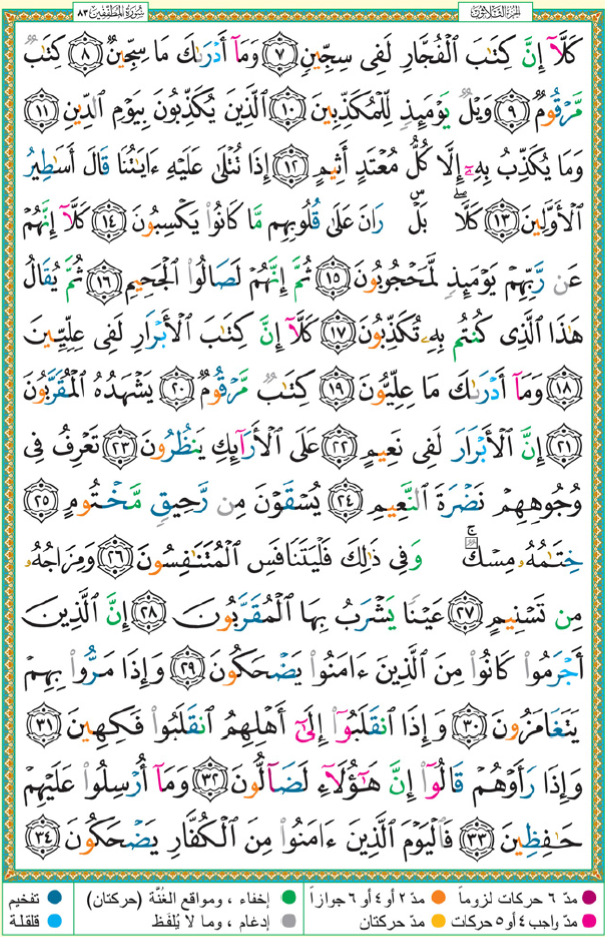 الجزء الثلاثون
سورة المطففين ٨٣
كَلَّآ إِنَّ كِتَٰبَ ٱلْفُجَّارِ لَفِى سِجِّينٍ ٧ وَمَآ أَدْرَىٰكَ مَا سِجِّينٌ ٨ كِتَٰبٌ
مَّرْقُومٌ ٩ وَيْلٌ يَوْمَئِذٍ لِّلْمُكَذِّبِينَ ١٠ ٱلَّذِينَ يُكَذِّبُونَ بِيَوْمِ ٱلدِّينِ ١١
وَمَا يُكَذِّبُ بِهِۦٓ إِلَّا كُلُّ مُعْتَدٍ أَثِيمٍ ١٢ إِذَا تُتْلَىٰ عَلَيْهِ ءَايَٰتُنَا قَالَ أَسَٰطِيرُ
ٱلْأَوَّلِينَ ١٣ كَلَّا ۖ بَلْ ۜ رَانَ عَلَىٰ قُلُوبِهِم مَّا كَانُوا۟ يَكْسِبُونَ ١٤ كَلَّآ إِنَّهُمْ
عَن رَّبِّهِمْ يَوْمَئِذٍ لَّمَحْجُوبُونَ ١٥ ثُمَّ إِنَّهُمْ لَصَالُوا۟ ٱلْجَحِيمِ ١٦ ثُمَّ يُقَالُ
هَٰذَا ٱلَّذِى كُنتُم بِهِۦ تُكَذِّبُونَ ١٧ كَلَّآ إِنَّ كِتَٰبَ ٱلْأَبْرَارِ لَفِى عِلِّيِّينَ
١٨ وَمَآ أَدْرَىٰكَ مَا عِلِّيُّونَ ١٩ كِتَٰبٌ مَّرْقُومٌ ٢٠ يَشْهَدُهُ ٱلْمُقَرَّبُونَ
٢١ إِنَّ ٱلْأَبْرَارَ لَفِى نَعِيمٍ ٢٢ عَلَى ٱلْأَرَآئِكِ يَنظُرُونَ ٢٣ تَعْرِفُ فِى
وُجُوهِهِمْ نَضْرَةَ ٱلنَّعِيمِ ٢٤ يُسْقَوْنَ مِن رَّحِيقٍ مَّخْتُومٍ ٢٥
خِتَٰمُهُۥ مِسْكٌ ۚ وَفِى ذَٰلِكَ فَلْيَتَنَافَسِ ٱلْمُتَنَٰفِسُونَ ٢٦ وَمِزَاجُهُۥ
مِن تَسْنِيمٍ ٢٧ عَيْنًا يَشْرَبُ بِهَا ٱلْمُقَرَّبُونَ ٢٨ إِنَّ ٱلَّذِينَ
أَجْرَمُوا۟ كَانُوا۟ مِنَ ٱلَّذِينَ ءَامَنُوا۟ يَضْحَكُونَ ٢٩ وَإِذَا مَرُّوا۟ بِهِمْ
يَتَغَامَزُونَ ٣٠ وَإِذَا ٱنقَلَبُوٓا۟ إِلَىٰٓ أَهْلِهِمُ ٱنقَلَبُوا۟ فَكِهِينَ ٣١
وَإِذَا رَأَوْهُمْ قَالُوٓا۟ إِنَّ هَٰٓؤُلَآءِ لَضَآلُّونَ ٣٢ وَمَآ أُرْسِلُوا۟ عَلَيْهِمْ
حَٰفِظِينَ ٣٣ فَٱلْيَوْمَ ٱلَّذِينَ ءَامَنُوا۟ مِنَ ٱلْكُفَّارِ يَضْحَكُونَ ٣٤
مدّ ٦ حركات لزوماً مدّ ٢ أو ٤ أو ٦ جوازاً إخفاء ، ومواقع الغُنَّة (حركتان) تفخيم
مدّ واجب ٤ أو ٥ حركات مدّ حركتان إدغام ، وما لا يُلفَظ قلقلة